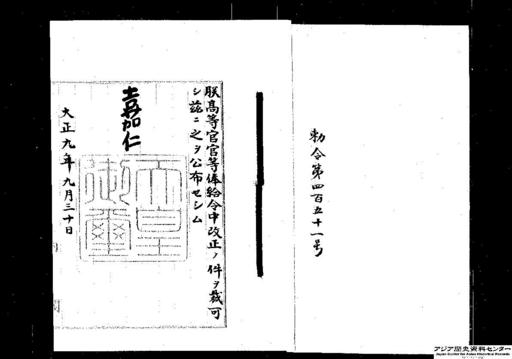 勅令第四百五十一号
朕高等官官等俸給令中改正ノ件ヲ裁可
シ茲ニ之ヲ公布セシム
嘉仁
天皇
御璽
大正九年九月三十日
アジア歴史資料センター
Japan Center for Asian Historical Records